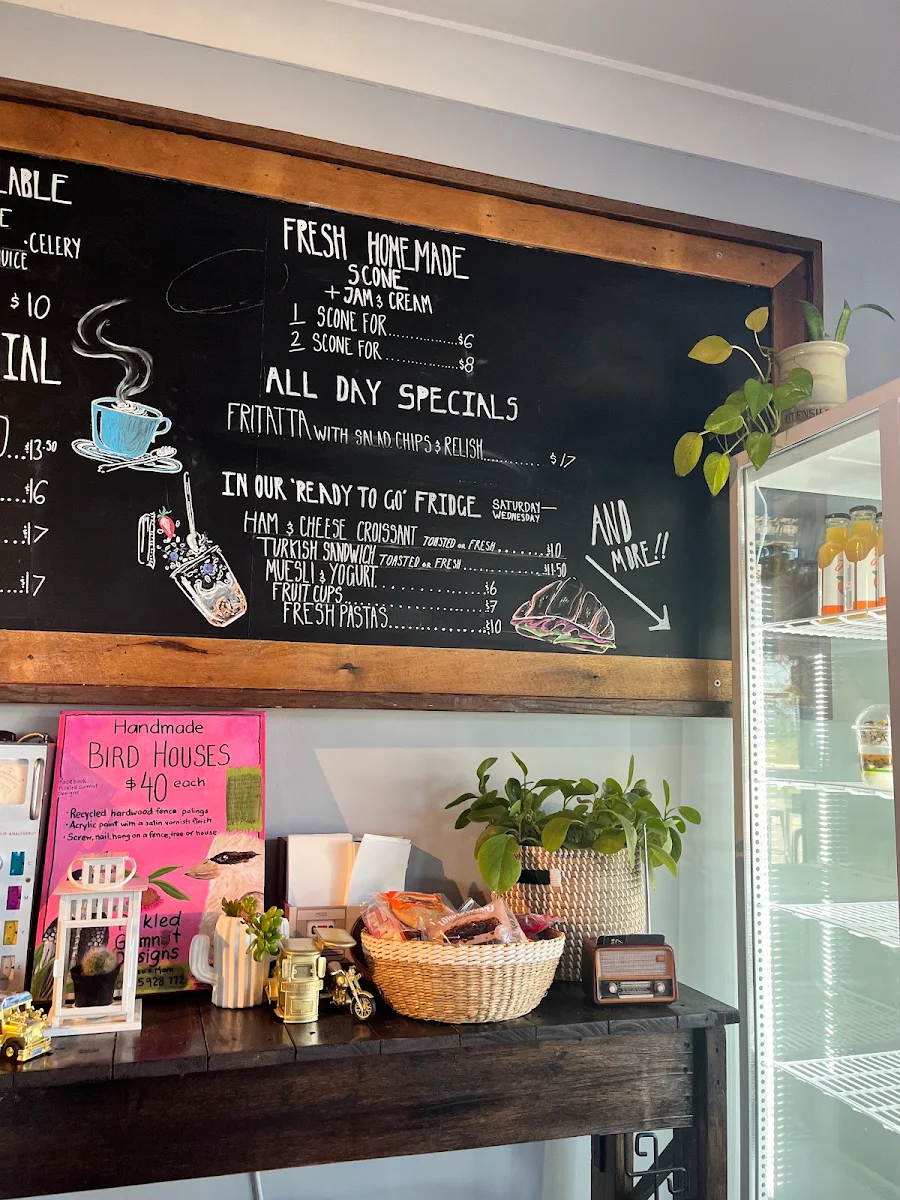 LABLE
E
.CELERY
UICE
$10
IAL
...$13.50
....$16
....$17
....$17
FRESH HOMEMADE
SCONE
+ JAM & CREAM
1 SCONE FOR..............$6
2 SCONE FOR..............$8
ALL DAY SPECIALS
FRITATTA WITH SALAD CHIPS & RELISH............ $17
IN OUR 'READY TO GO' FRIDGE SATURDAY—
WEDNESDAY
HAM & CHEESE CROISSANT TOASTED OR FRESH.........$10
TURKISH SANDWICH TOASTED OR FRESH..............$11.50
MUESLI & YOGURT..................$6
FRUIT CUPS......................$7
FRESH PASTAS..............$10
AND
MORE!!
Handmade
BIRD HOUSES
$40 each
Facebook
Designs
· Recycled hardwood fence palings
· Acrylic paint with a satin varnish finish
· Screw, nail, hang on a fence, tree or house
kled
Gumnut
Designs
5928 772